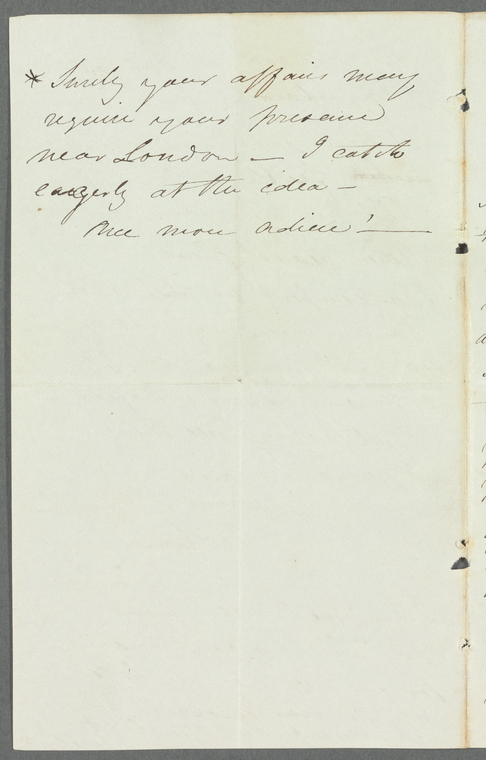 * Surely your affairs may
require your presence
near London — I catch
eagerly at the idea —
One more adieu! —